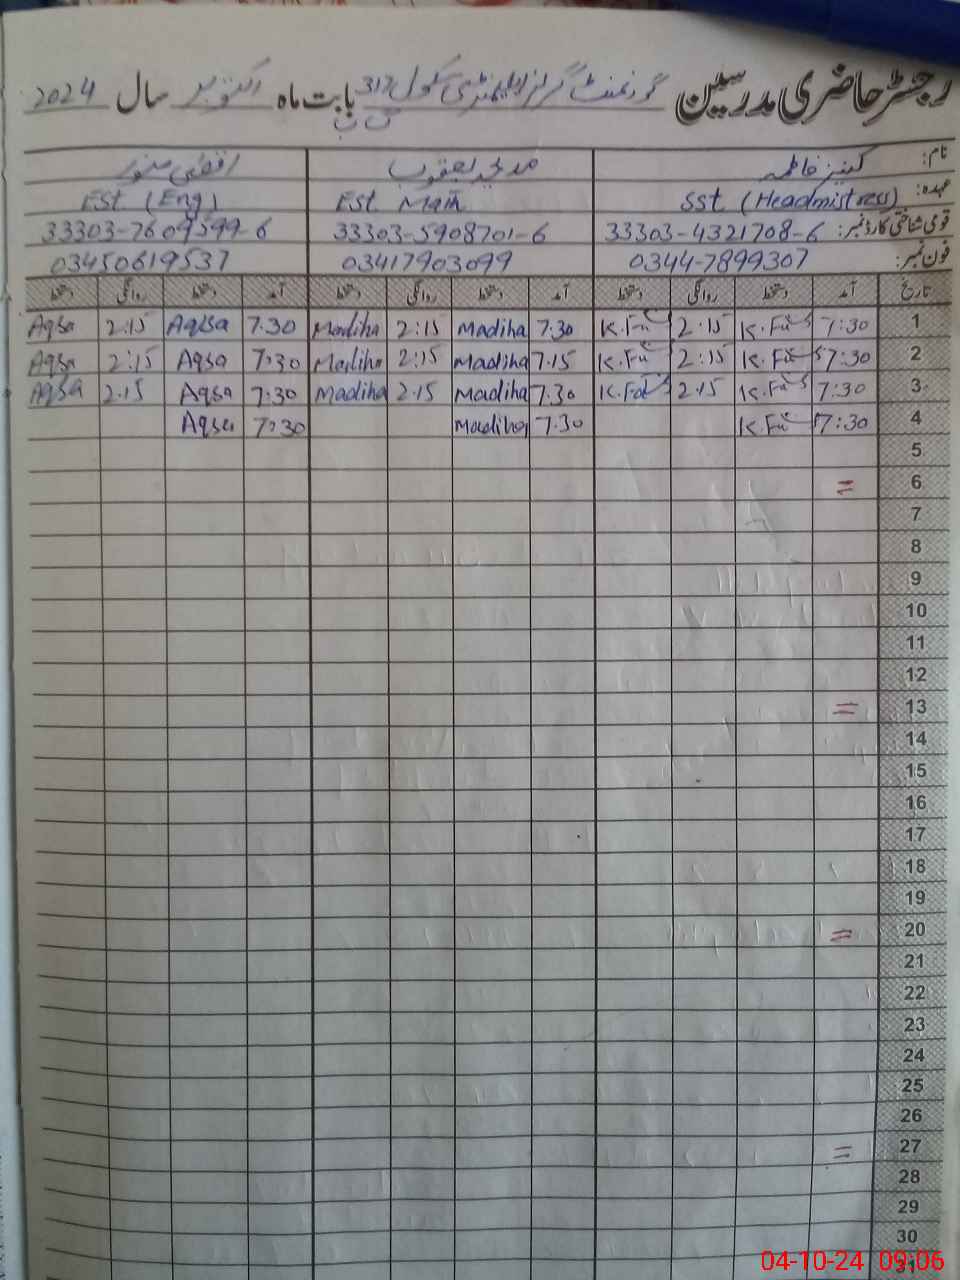 رجسٹر حاضری مدرسین گورنمنٹ گرلز ایلیمنٹری سکول 312 بابت ماہ اکتوبر سال 2024
نام: کنیز فاطمہ مدیحہ یعقوب اقصیٰ منور
عہدہ: SST (Headmistress) EST Math EST (Eng)
قومی شناختی کارڈ نمبر: 33303-4321708-6 33303-5908701-6 33303-7609599-6
فون نمبر: 0344-7899307 03417903099 03450619537
تاریخ آمد دستخط روانگی دستخط آمد دستخط روانگی دستخط آمد دستخط روانگی دستخط
1 7:30 K.Fa 2:15 K.Fa 7.30 Madiha 2:15 Madiha 7.30 Aqsa 2:15 Aqsa
2 7:30 K.Fa 2:15 K.Fa 7.15 Madiha 2:15 Madiha 7:30 Aqsa 2:15 Aqsa
3 7:30 K.Fa 2.15 K.Fa 7.30 Madiha 2.15 Madiha 7.30 Aqsa 2.15 Aqsa
4 7:30 K.Fa 7.30 Madiha 7:30 Aqsa
5
6 =
7
8
9
10
11
12
13 =
14
15
16
17
18
19
20 =
21
22
23
24
25
26
27 =
28
29
30
31
04-10-24 09:06